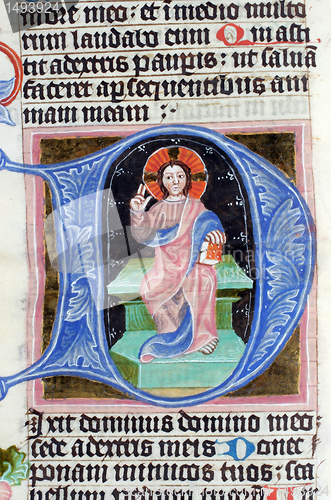 nore meo: et in medio multo
rum laudabo eum Quia asti
tit a dextris paupis: ut saluā
faceret apsequentibus ani
mam meam:
Dixit dominus domino meo
sede a dextris meis Donec
ponam inimicos tuos: sca